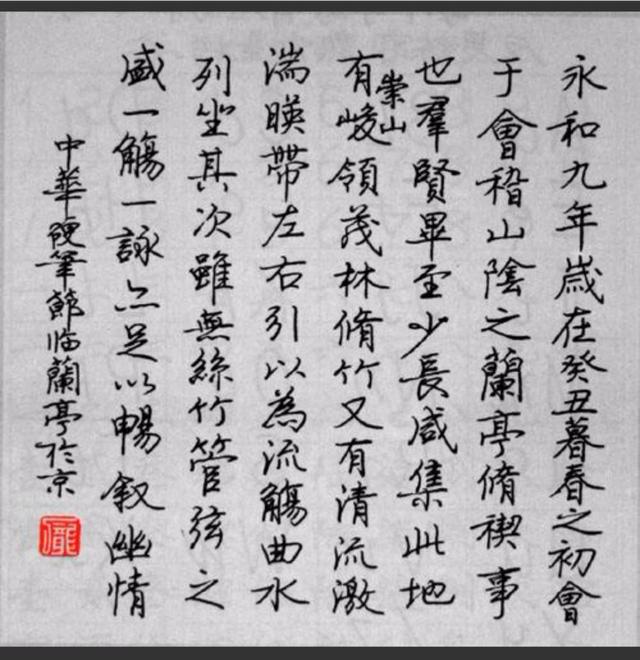 永和九年歲在癸丑暮春之初會
于會稽山陰之蘭亭脩禊事
也羣賢畢至少長咸集此地
有崇山峻領茂林脩竹又有清流激
湍暎帶左右引以為流觴曲水
列坐其次雖無絲竹管弦之
盛一觴一詠亦足以暢叙幽情
中華硬筆節临蘭亭於京